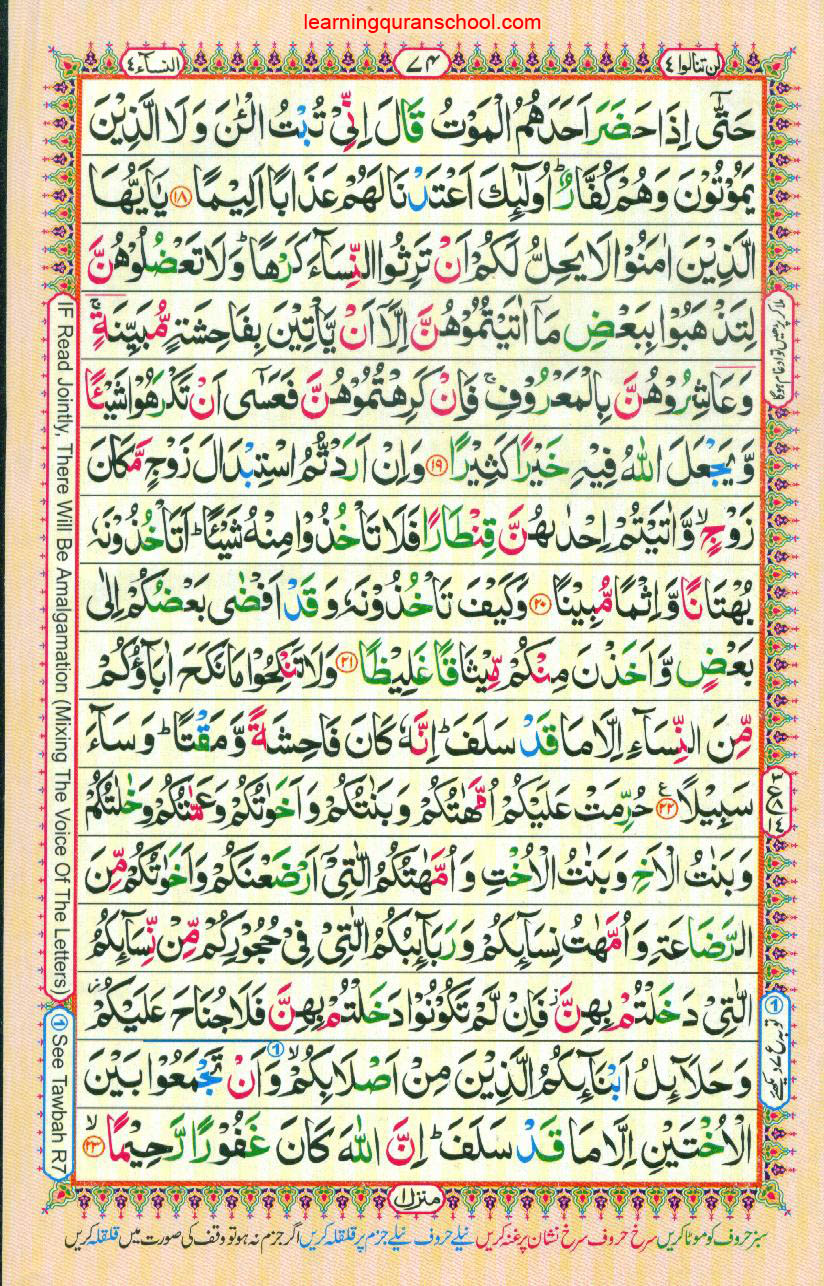 learningquranschool.com
لن تنالوا ٤
٧٤
النسآء ٤
حَتّٰۤى اِذَا حَضَرَ اَحَدَهُمُ الْمَوْتُ قَالَ اِنِّىْ تُبْتُ الْـٰٔنَ وَ لَا الَّذِيْنَ
يَمُوْتُوْنَ وَهُمْ كُفَّارٌ ؕ اُولٰٓئِكَ اَعْتَدْنَا لَهُمْ عَذَابًا اَلِيْمًا ﴿۱۸﴾ يٰۤاَيُّهَا
الَّذِيْنَ اٰمَنُوْا لَا يَحِلُّ لَكُمْ اَنْ تَرِثُوا النِّسَآءَ كَرْهًا ؕ وَ لَا تَعْضُلُوْهُنَّ
لِتَذْهَبُوْا بِبَعْضِ مَاۤ اٰتَيْتُمُوْهُنَّ اِلَّاۤ اَنْ يَّاْتِيْنَ بِفَاحِشَةٍ مُّبَيِّنَةٍ ۚ
وَ عَاشِرُوْهُنَّ بِالْمَعْرُوْفِ ۚ فَاِنْ كَرِهْتُمُوْهُنَّ فَعَسٰۤى اَنْ تَكْرَهُوْا شَيْـًٔا
وَّ يَجْعَلَ اللّٰهُ فِيْهِ خَيْرًا كَثِيْرًا ﴿۱۹﴾ وَاِنْ اَرَدْتُّمُ اسْتِبْدَالَ زَوْجٍ مَّكَانَ
زَوْجٍ ۙ وَّاٰتَيْتُمْ اِحْدٰىهُنَّ قِنْطَارًا فَلَا تَاْخُذُوْا مِنْهُ شَيْـًٔا ؕ اَتَاْخُذُوْنَهٗ
بُهْتَانًا وَّ اِثْمًا مُّبِيْنًا ﴿۲۰﴾ وَكَيْفَ تَاْخُذُوْنَهٗ وَ قَدْ اَفْضٰى بَعْضُكُمْ اِلٰى
بَعْضٍ وَّ اَخَذْنَ مِنْكُمْ مِّيْثَاقًا غَلِيْظًا ﴿۲۱﴾ وَلَا تَنْكِحُوْا مَا نَكَحَ اٰبَآؤُكُمْ
مِّنَ النِّسَآءِ اِلَّا مَا قَدْ سَلَفَ ؕ اِنَّهٗ كَانَ فَاحِشَةً وَّ مَقْتًا ؕ وَ سَآءَ
سَبِيْلًا ﴿۲۲﴾ حُرِّمَتْ عَلَيْكُمْ اُمَّهٰتُكُمْ وَ بَنٰتُكُمْ وَ اَخَوٰتُكُمْ وَ عَمّٰتُكُمْ وَ خٰلٰتُكُمْ
وَ بَنٰتُ الْاَخِ وَ بَنٰتُ الْاُخْتِ وَ اُمَّهٰتُكُمُ الّٰتِىْۤ اَرْضَعْنَكُمْ وَ اَخَوٰتُكُمْ مِّنَ
الرَّضَاعَةِ وَ اُمَّهٰتُ نِسَآئِكُمْ وَ رَبَآئِبُكُمُ الّٰتِىْ فِىْ حُجُوْرِكُمْ مِّنْ نِّسَآئِكُمُ
الّٰتِىْ دَخَلْتُمْ بِهِنَّ ؗ فَاِنْ لَّمْ تَكُوْنُوْا دَخَلْتُمْ بِهِنَّ فَلَا جُنَاحَ عَلَيْكُمْ ؗ
وَ حَلَآئِلُ اَبْنَآئِكُمُ الَّذِيْنَ مِنْ اَصْلَابِكُمْ ۙ وَ اَنْ تَجْمَعُوْا بَيْنَ
الْاُخْتَيْنِ اِلَّا مَا قَدْ سَلَفَ ؕ اِنَّ اللّٰهَ كَانَ غَفُوْرًا رَّحِيْمًا ﴿۲۳﴾ ۙ
منزل ١
سبز حروف کو موٹا کریں سرخ حروف سرخ نشان پر غنہ کریں نیلے حروف نیلے جزم پر قلقلہ کریں اگر جزم نہ ہو تو وقف کی صورت میں قلقلہ کریں
IF Read Jointly, There Will Be Amalgamation (Mixing The Voice Of The Letters)
① See Tawbah R7